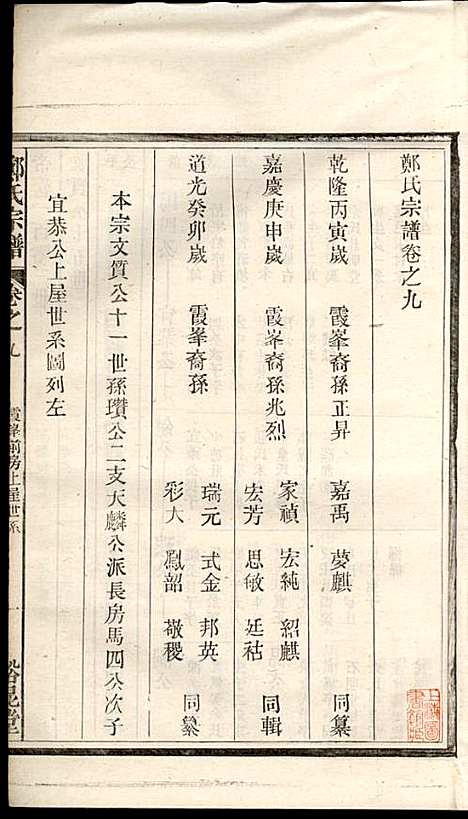 鄭氏宗譜卷之九
乾隆丙寅歲 霞峯裔孫正昇 嘉禹 夢麒 同纂
嘉慶庚申歲 霞峯裔孫兆烈 家禎 宏純 紹麒
宏芳 思敏 廷祜 同輯
道光癸卯歲 霞峯裔孫 瑞元 式金 邦英
彩大 鳳韶 敬稷 同纂
本宗文質公十一世孫瓚公二支天麟公派長房馬四公次子
宜恭公上屋世系圖列左
鄭氏宗譜 卷之九 霞峰前房上屋世系 一
上海圖書館藏